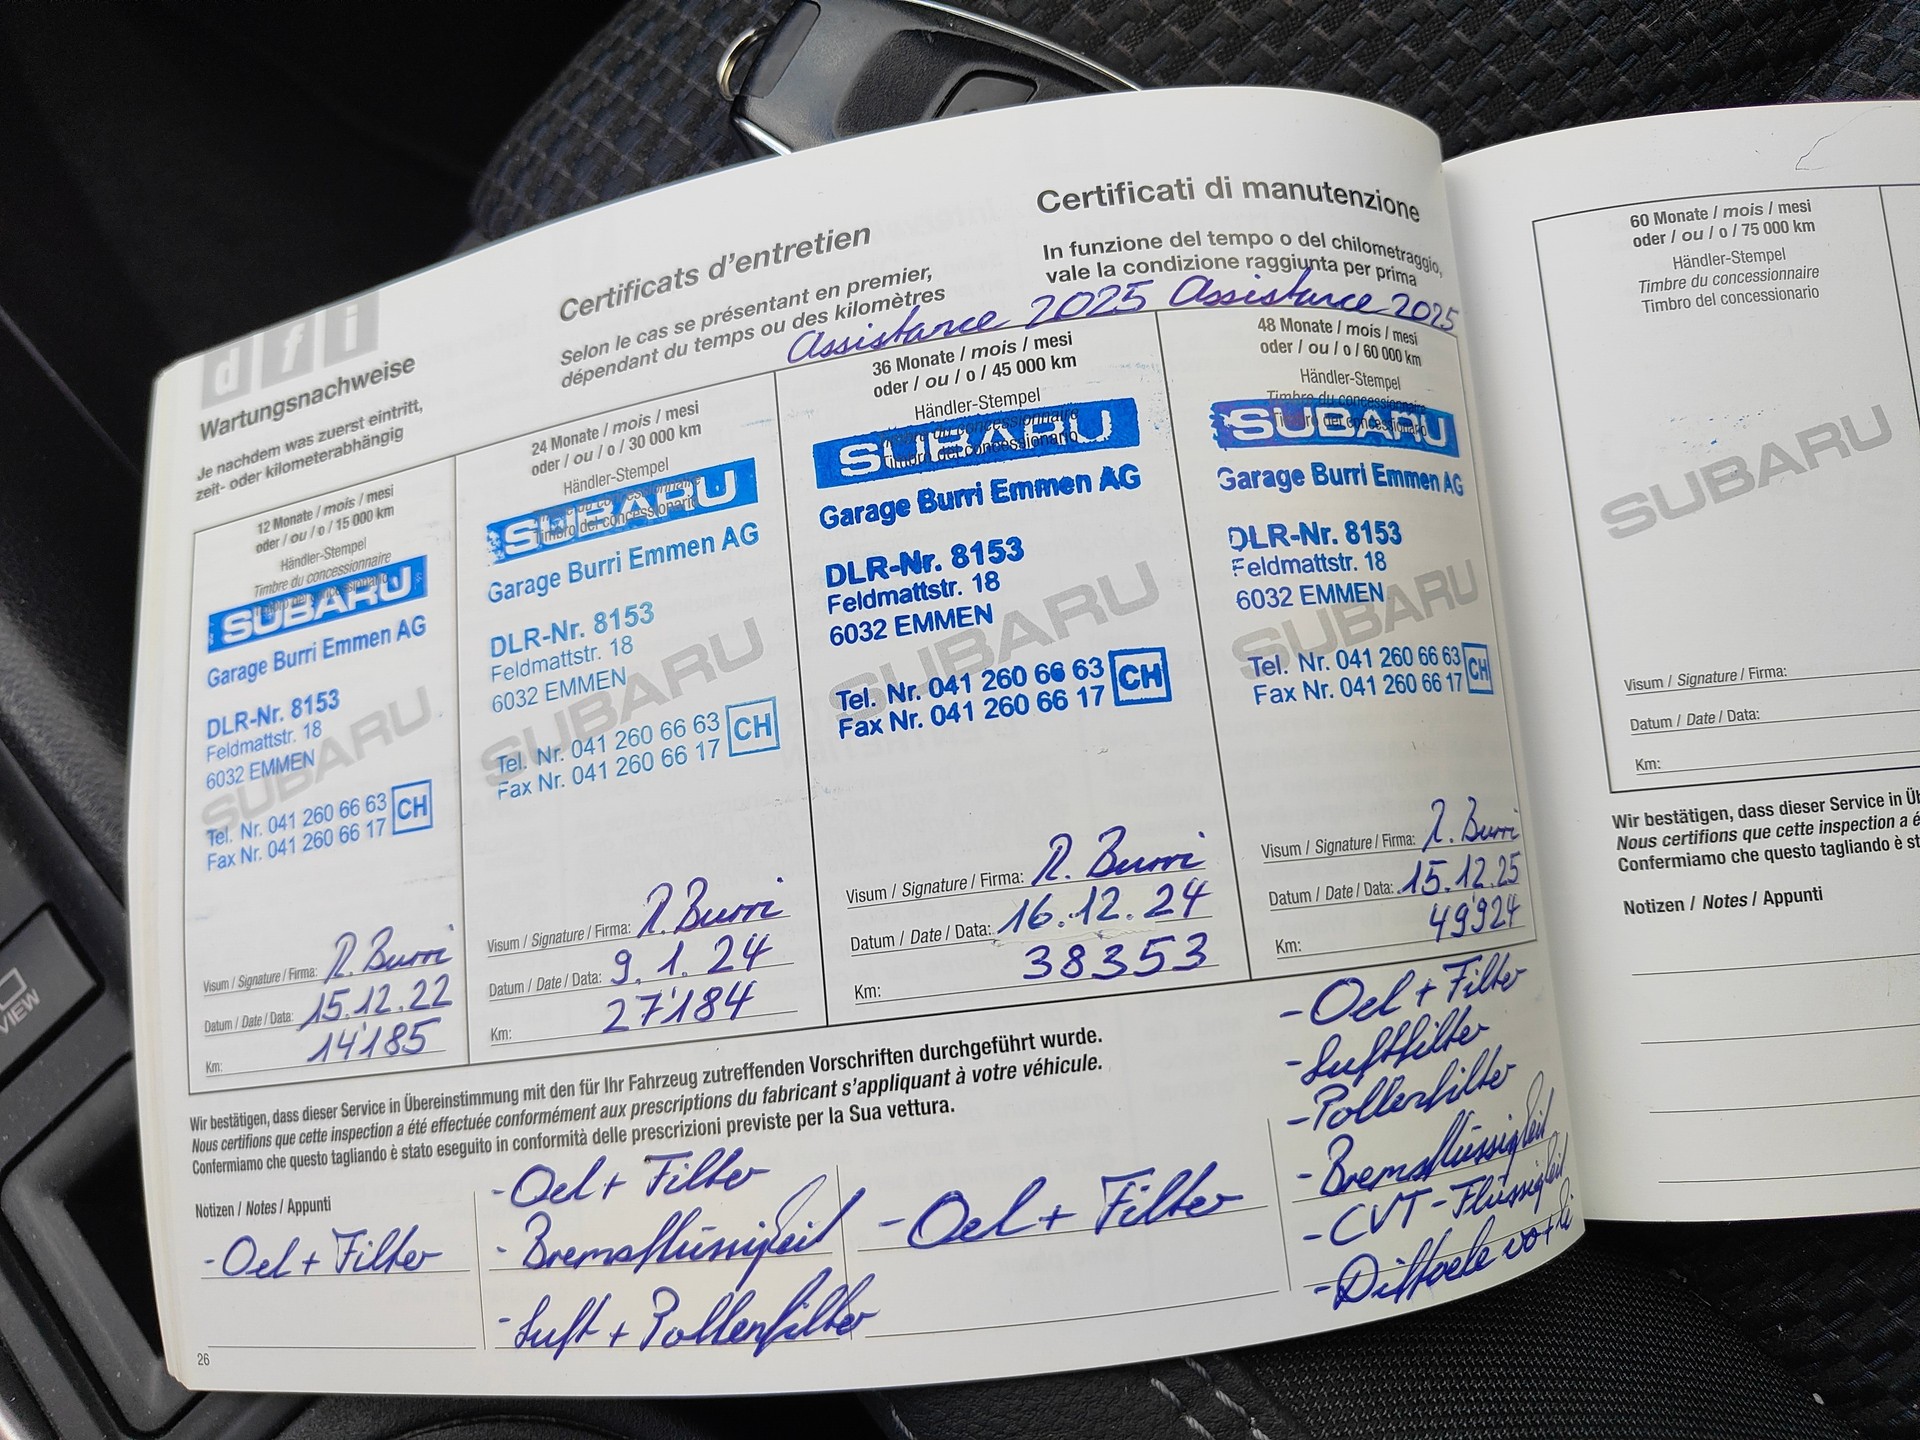 dfi
Wartungsnachweise
Je nachdem was zuerst eintritt,
zeit- oder kilometerabhängig
Certificats d'entretien
Selon le cas se présentant en premier,
dépendant du temps ou des kilomètres
Certificati di manutenzione
In funzione del tempo o del chilometraggio,
vale la condizione raggiunta per prima
Assistance 2025 Assistance 2025
12 Monate / mois / mesi
oder / ou / o / 15 000 km
Händler-Stempel
Timbre du concessionnaire
SUBARU
Garage Burri Emmen AG
DLR-Nr. 8153
Feldmattstr. 18
6032 EMMEN
SUBARU
Tel. Nr. 041 260 66 63
Fax Nr. 041 260 66 17
CH
Visum / Signature / Firma: R. Burri
Datum / Date / Data: 15.12.22
Km: 14'185
24 Monate / mois / mesi
oder / ou / o / 30 000 km
Händler-Stempel
Timbre du concessionnaire
Timbro del concessionario
SUBARU
Garage Burri Emmen AG
DLR-Nr. 8153
Feldmattstr. 18
6032 EMMEN
SUBARU
Tel. Nr. 041 260 66 63
Fax Nr. 041 260 66 17
CH
Visum / Signature / Firma: R. Burri
Datum / Date / Data: 9.1.24
Km: 27'184
36 Monate / mois / mesi
oder / ou / o / 45 000 km
Händler-Stempel
Timbre du concessionnaire
Timbro del concessionario
SUBARU
Garage Burri Emmen AG
DLR-Nr. 8153
Feldmattstr. 18
6032 EMMEN
SUBARU
Tel. Nr. 041 260 66 63
Fax Nr. 041 260 66 17
CH
Visum / Signature / Firma: R. Burri
Datum / Date / Data: 16.12.24
Km: 38353
48 Monate / mois / mesi
oder / ou / o / 60 000 km
Händler-Stempel
Timbre du concessionnaire
Timbro del concessionario
SUBARU
Garage Burri Emmen AG
DLR-Nr. 8153
Feldmattstr. 18
6032 EMMEN
SUBARU
Tel. Nr. 041 260 66 63
Fax Nr. 041 260 66 17
CH
Visum / Signature / Firma: R. Burri
Datum / Date / Data: 15.12.25
Km: 49'924
Wir bestätigen, dass dieser Service in Übereinstimmung mit den für Ihr Fahrzeug zutreffenden Vorschriften durchgeführt wurde.
Nous certifions que cette inspection a été effectuée conformément aux prescriptions du fabricant s'appliquant à votre véhicule.
Confermiamo che questo tagliando è stato eseguito in conformità delle prescrizioni previste per la Sua vettura.
Notizen / Notes / Appunti
- Oel + Filter
- Oel + Filter
- Bremsflüssigkeit
- Luft + Pollenfilter
- Oel + Filter
- Oel + Filter
- Luftfilter
- Pollenfilter
- Bremsflüssigkeit
- CVT-Flüssigkeit
- Diffoele vo + hi
26
60 Monate / mois / mesi
oder / ou / o / 75 000 km
Händler-Stempel
Timbre du concessionnaire
Timbro del concessionario
SUBARU
Visum / Signature / Firma:
Datum / Date / Data:
Km:
Wir bestätigen, dass dieser Service in Üb
Nous certifions que cette inspection a é
Confermiamo che questo tagliando è st
Notizen / Notes / Appunti
VIEW